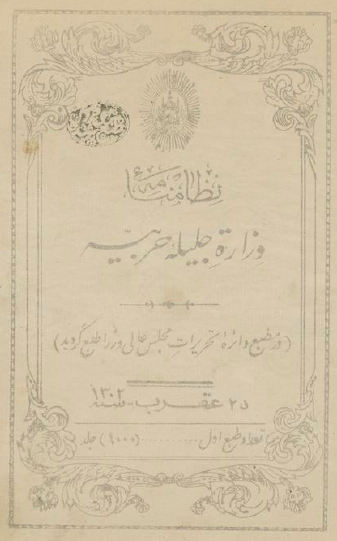 نظامنامهٔ
وزارة جلیلهٔ حربیه
(در مطبع دائرهٔ تحریرات مجلس عالی وزرا طبع گردید)
٢٥ عقرب سنه ١٣٠٢
تعداد طبع اول .......... (١٠٠٠) جلد